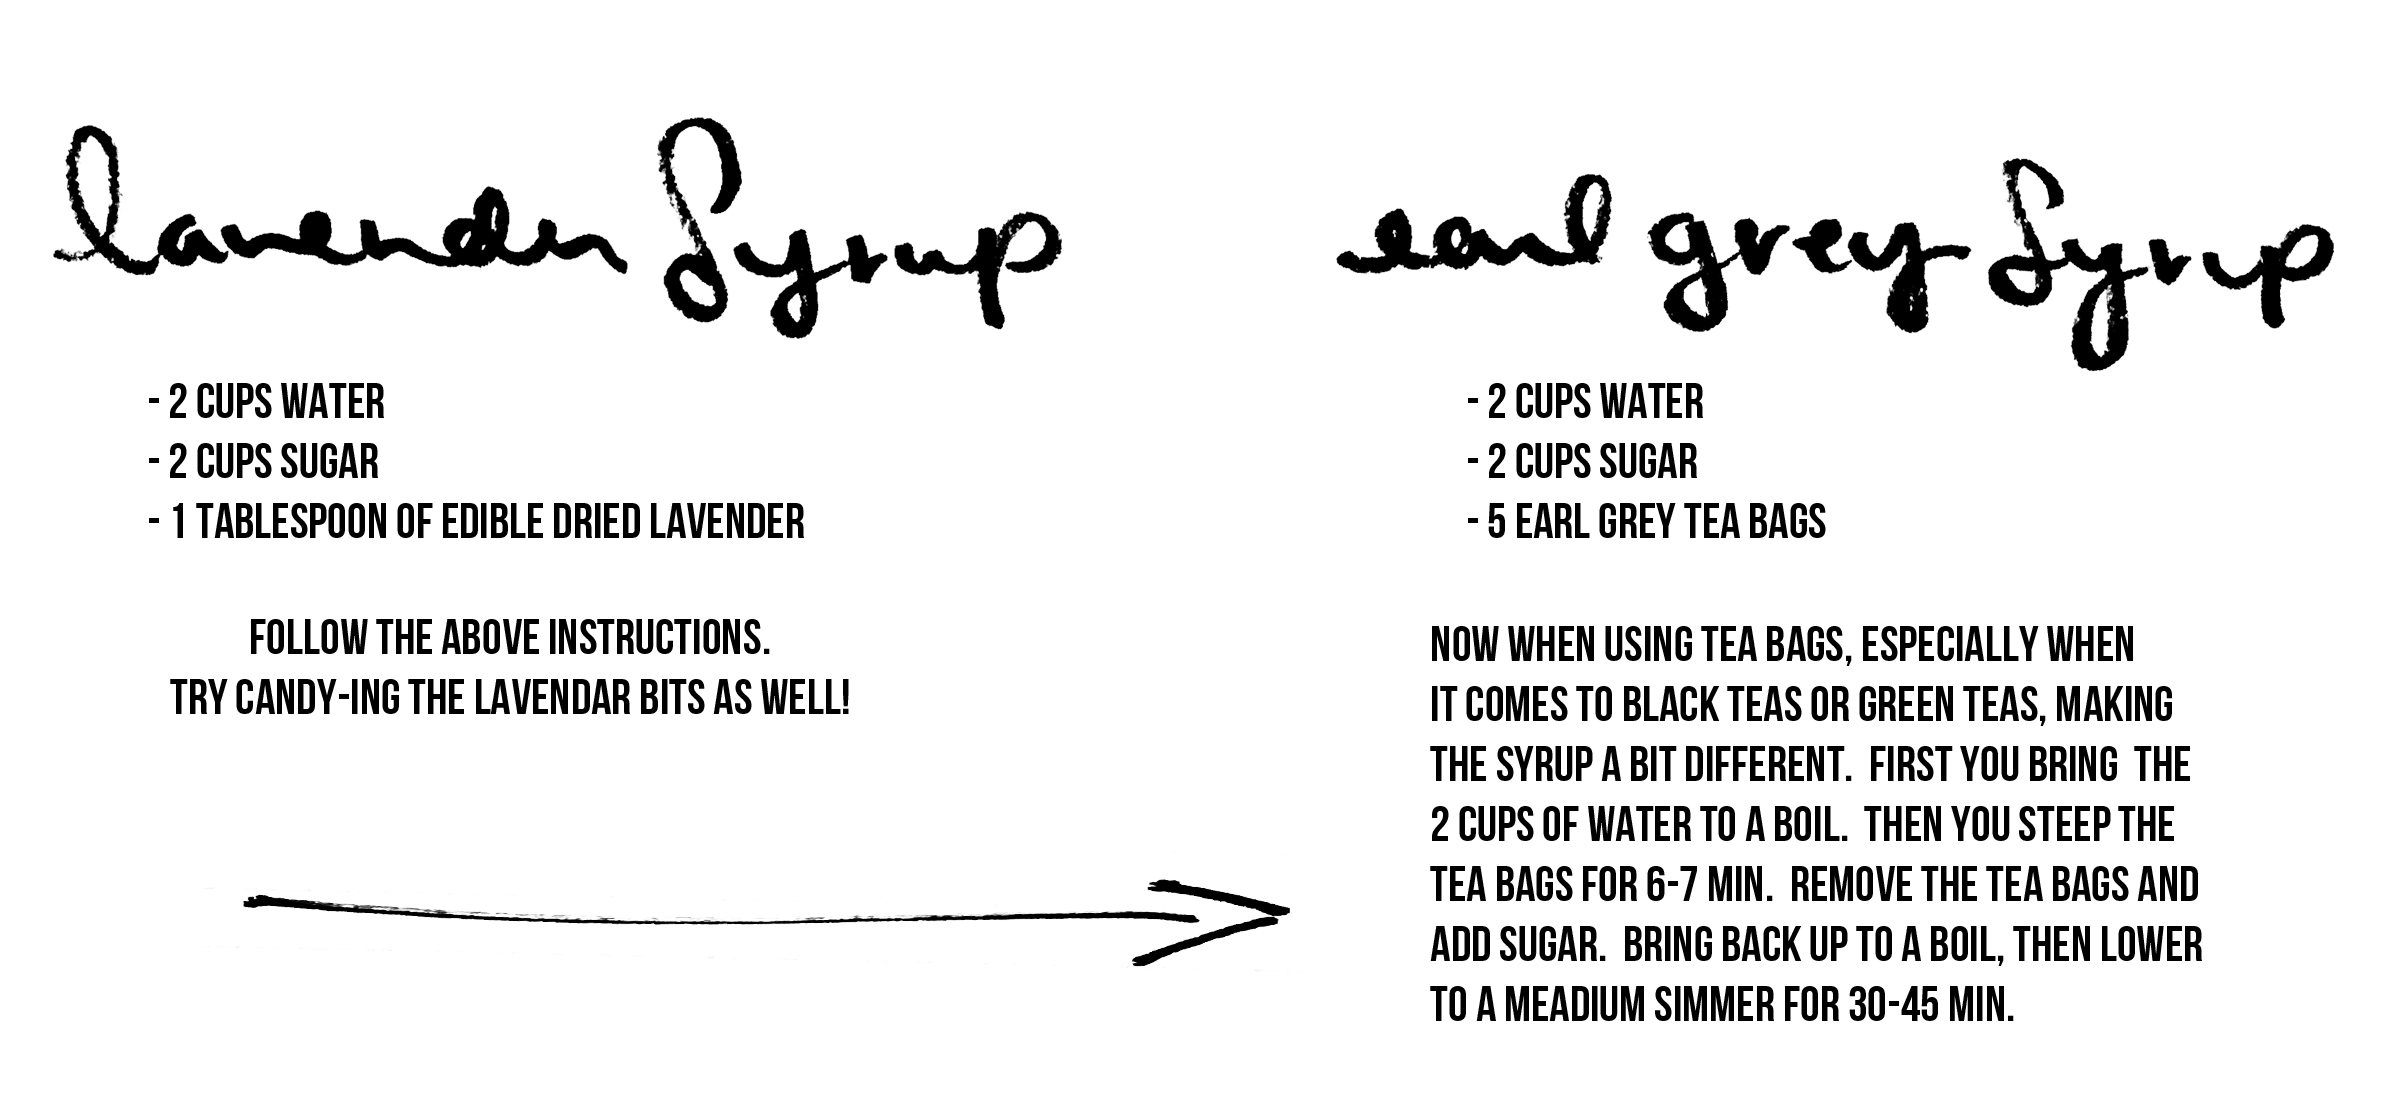 lavender Syrup
- 2 CUPS WATER
- 2 CUPS SUGAR
- 1 TABLESPOON OF EDIBLE DRIED LAVENDER
FOLLOW THE ABOVE INSTRUCTIONS.
TRY CANDY-ING THE LAVENDAR BITS AS WELL!
earl grey Syrup
- 2 CUPS WATER
- 2 CUPS SUGAR
- 5 EARL GREY TEA BAGS
NOW WHEN USING TEA BAGS, ESPECIALLY WHEN
IT COMES TO BLACK TEAS OR GREEN TEAS, MAKING
THE SYRUP A BIT DIFFERENT. FIRST YOU BRING THE
2 CUPS OF WATER TO A BOIL. THEN YOU STEEP THE
TEA BAGS FOR 6-7 MIN. REMOVE THE TEA BAGS AND
ADD SUGAR. BRING BACK UP TO A BOIL, THEN LOWER
TO A MEADIUM SIMMER FOR 30-45 MIN.